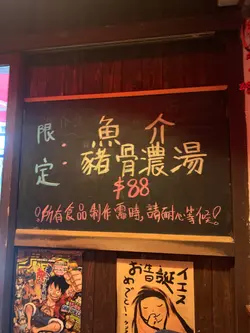 限定：
魚介
豬骨濃湯
$88
！所有食品製作需時，請耐心等候！
お誕生日
めでとう
イエス